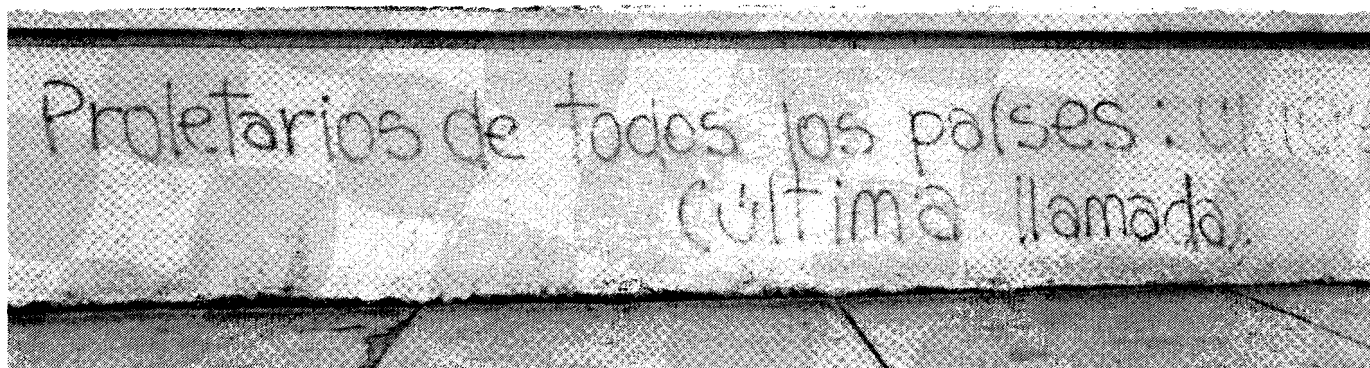 Proletarios de todos los países:
(última llamada)